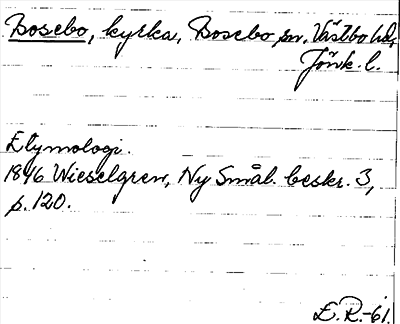 Bosebo, kyrka, Bosebo sn, Västbo hd,
Jönk. l.
Etymologi.
1846 Wieselgren, Ny Smål. beskr. 3,
p. 120.
E. R. -61.